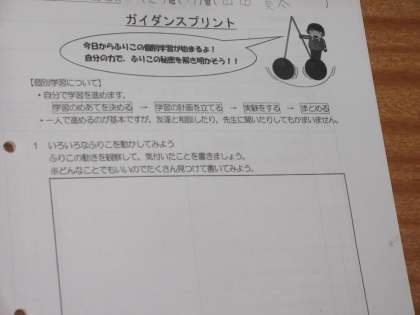 ガイダンスプリント
今日からふりこの個別学習が始まるよ！
自分の力で、ふりこの秘密を解き明かそう！！
【個別学習について】
・自分で学習を進めます。
学習のめあてを決める → 学習の計画を立てる → 実験をする → まとめる
・一人で進めるのが基本ですが、友達と相談したり、先生に聞いたりしてもかまいません。
1 いろいろなふりこを動かしてみよう
ふりこの動きを観察して、気付いたことを書きましょう。
※どんなことでもいいのでたくさん見つけて書いてみよう。